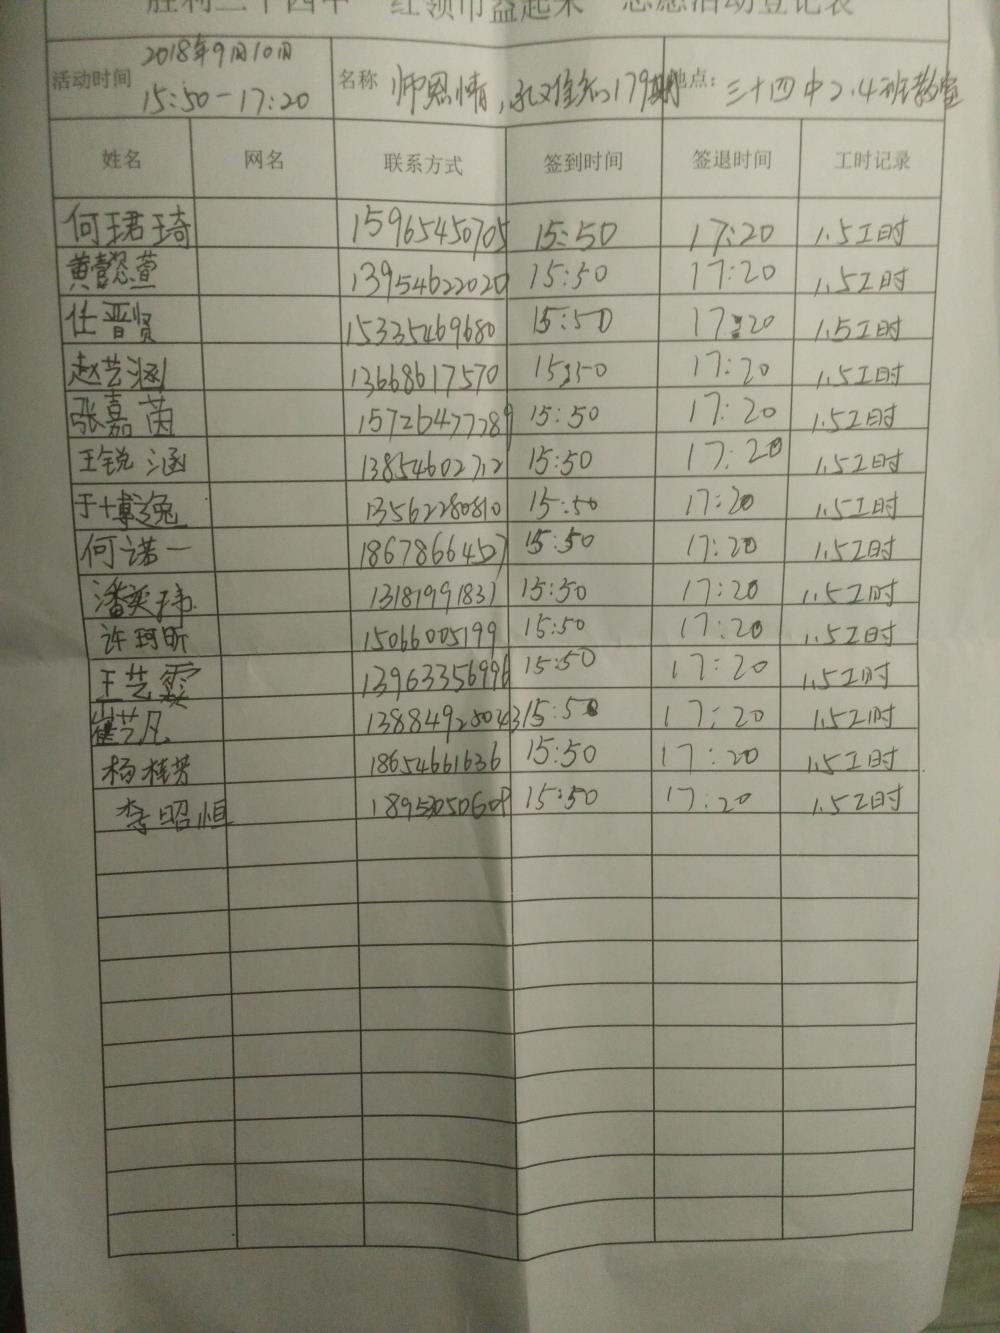 胜利三十四中“红领巾益起来”志愿活动登记表
活动时间 2018年9月10日 15:50-17:20 名称 师恩情, 179期 地点: 三十四中2.4班教室
姓名 网名 联系方式 签到时间 签退时间 工时记录
何珺琦 15965450705 15:50 17:20 1.5工时
黄懿萱 13954622020 15:50 17:20 1.5工时
任晋贤 15335469680 15:50 17:20 1.5工时
赵艺涵 13668617570 15:50 17:20 1.5工时
张嘉茵 15726477289 15:50 17:20 1.5工时
王锐涵 13854602712 15:50 17:20 1.5工时
于博逸 13562280810 15:50 17:20 1.5工时
何诺一 18678664527 15:50 17:20 1.5工时
潘奕玮 13181991831 15:50 17:20 1.5工时
许珂昕 15066005199 15:50 17:20 1.5工时
王艺霖 13963356996 15:50 17:20 1.5工时
崔艺凡 13884928043 15:50 17:20 1.5工时
杨桂芳 18654661636 15:50 17:20 1.5工时
李昭恒 15:50 17:20 1.5工时